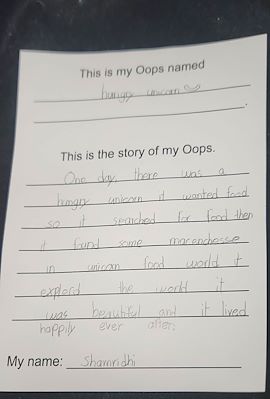 This is my Oops named
hungry unicorn
This is the story of my Oops.
One day, there was a
hungry unicorn it wanted food
so it searched for food then
it found some marcencheese
in unicorn food world it
explord the world it
was beautiful and it lived
happily ever after.
My name: Shamridhi